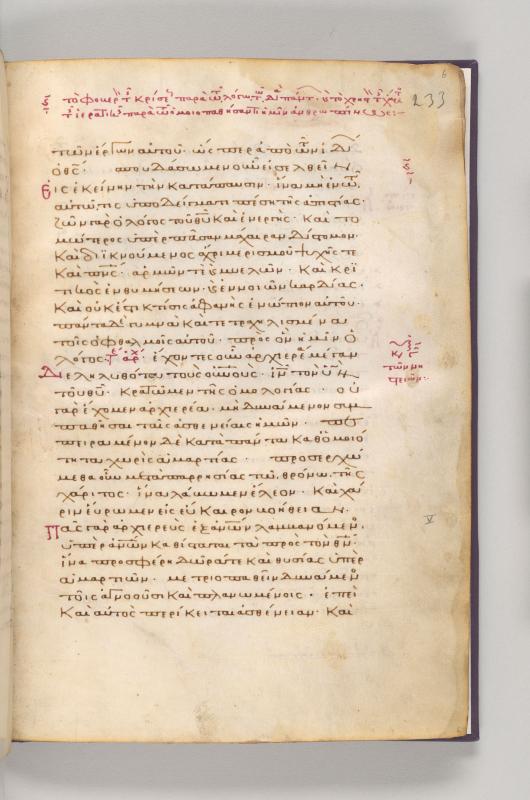 233
τῶν ἔργων αὐτοῦ· ὥς περ ἀπὸ τῶν ἰδί
ὁ θς· σπουδάσωμεν οὖν εἰσελθεῖν
Εἰς ἐκείνην τὴν κατάπαυσιν· ἵνα μὴ ἐν τῶ
αὐτῶ τις ὑποδείγματι πέση τῆς ἀπιστίας
ζῶν γὰρ ὁ λόγος τοῦ θυ καὶ ἐνεργής· καὶ το
μώτερος ὑπὲρ πᾶσαν μάχαιραν δίστομον·
καὶ διϊκνούμενος ἄχρι μερισμοῦ ψυχῆς τε
καὶ πνς· ἁρμῶν τε ϗ μυελῶν· καὶ κρι
τικὸς ἐνθυμήσεων ϗ ἐννοιῶν καρδίας·
καὶ οὐκ ἔστι κτίσις ἀφανὴς ἐνώπιον αὐτοῦ·
πάντα δὲ γυμνὰ καὶ τετραχηλισμένα
τοῖς ὀφθαλμοῖς αὐτοῦ· πρὸς ὃν ἡμῖν ὁ
λόγος· ἔχοντες οὖν ἀρχιερέα μέγαν
Διεληλυθότα τοὺς οὐνους· ιν τὸν υν
τοῦ θυ· κρατῶμεν τῆς ὁμολογίας· οὐ
γὰρ ἔχομεν ἀρχιερέα μὴ δυνάμενον συμ
παθῆσαι ταῖς ἀσθενείαις ἡμῶν· πε
πειραμένον δὲ κατὰ πάντα καθ ὁμοιό
τητα χωρὶς ἁμαρτίας· προσερχώ
μεθα οὖν μετὰ παρρησίας τῶ θρόνω τῆς
χάριτος· ἵνα λάβωμεν ἔλεον· καὶ χά
ριν εὕρωμεν εἰς εὔκαιρον βοήθειαν
Πᾶς γὰρ ἀρχιερεὺς ἐξ ἀνων λαμβανόμεν
ὑπὲρ ἀνων καθίσταται τὰ πρὸς τὸν θν·
ἵνα προσφέρη δῶρά τε καὶ θυσίας ὑπὲρ
ἁμαρτιῶν· μετριοπαθεῖν δυνάμεν
τοῖς ἀγνοοῦσι καὶ πλανωμένοις· ἐπεὶ
καὶ αὐτὸς περίκειται ἀσθένειαν· καὶ